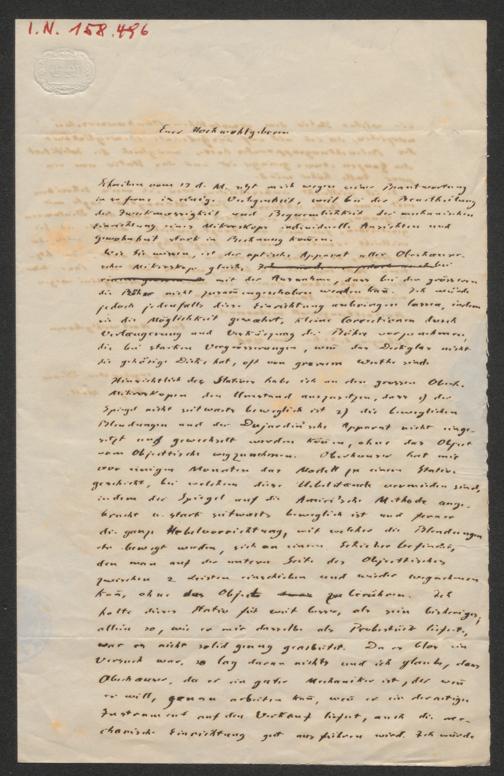 I.N. 158.496
Euer Hochwohlgeboren
Schreiben vom 17 d. M. setzt mich wegen seiner Beantwortung
in so ferne in einige Verlegenheit, weil bei der Beurtheilung
der Zweckmässigkeit und Bequemlichkeit der mechanischen
Einrichtung eines Mikroskops individuelle Ansichten und
Gewohnheit stark in Rechnung kommen.
Wie Sie wissen, ist der optische Apparat aller Oberhäuser-
schen Mikroskope gleich,
mit der Ausnahme, dass bei den grössern
die Röhre nicht zusammengeschoben werden kann. Ich würde
jedoch jedenfalls diese Einrichtung anbringen lassen, indem
sie die Möglichkeit gewährt, kleine Correctionen durch
Verlängerung und Verkürzung der Röhre vorzunehmen,
die bei starken Vergrösserungen, wenn das Deckglas nicht
die gehörige Dicke hat, oft von grossem Werthe sind.
Hinsichtlich des Statives habe ich an den grossen Oberh.
Mikroskopen den Umstand auszusetzen, dass 1) der
Spiegel nicht seitwärts beweglich ist 2) die beweglichen
Blendungen und der Dujardin'sche Apparat nicht einge-
setzt und gewechselt werden können, ohne das Object
vom Objecttische wegzunehmen. Oberhäuser hat mir
vor einigen Monaten das Modell zu einem Stative
geschickt, bei welchem diese Uebelstände vermieden sind,
indem der Spiegel auf die Amici'sche Methode ange-
bracht u. stark seitwärts beweglich ist und ferner
die ganze Hebelvorrichtung, mit welcher die Blendungen
etc bewegt werden, sich an einem Schieber befindet,
den man auf der untern Seite des Objecttisches
zwischen 2 Leisten einschieben und wieder wegnehmen
kann, ohne das Object zu berühren. Ich
halte dieses Stativ für weit besser, als sein bisheriges,
allein so, wie er mir dasselbe als Probestück liefert,
war es nicht solid genug gearbeitet. Da es blos ein
Versuch war, so lag daran nichts und ich glaube, dass
Oberhäuser, da er ein guter Mechaniker ist, der wenn
er will, genau arbeiten kann, wenn er ein derartiges
Instrument auf den Verkauf liefert, auch die me-
chanische Einrichtung gut ausführen wird. Ich würde